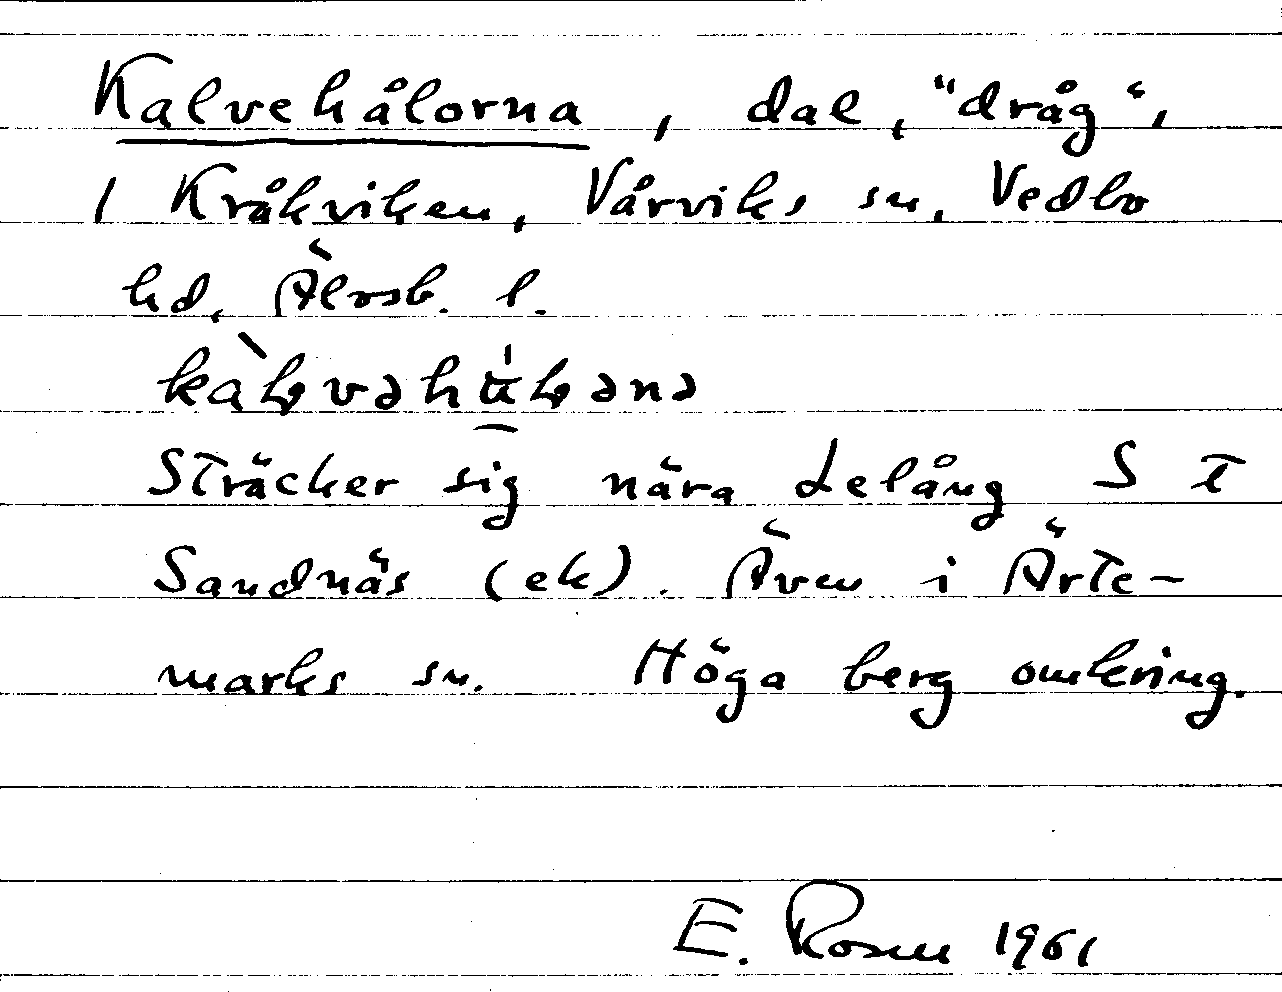 Kalvehålorna, dal, "dråg",
1 Kråkviken, Vårviks sn, Vedbo
hd, Älvsb. l.
Sträcker sig nära Lelång S I
Sandnäs (ek). Även i Ärte-
marks sn. Höga berg omkring.
E. Rosen 1961